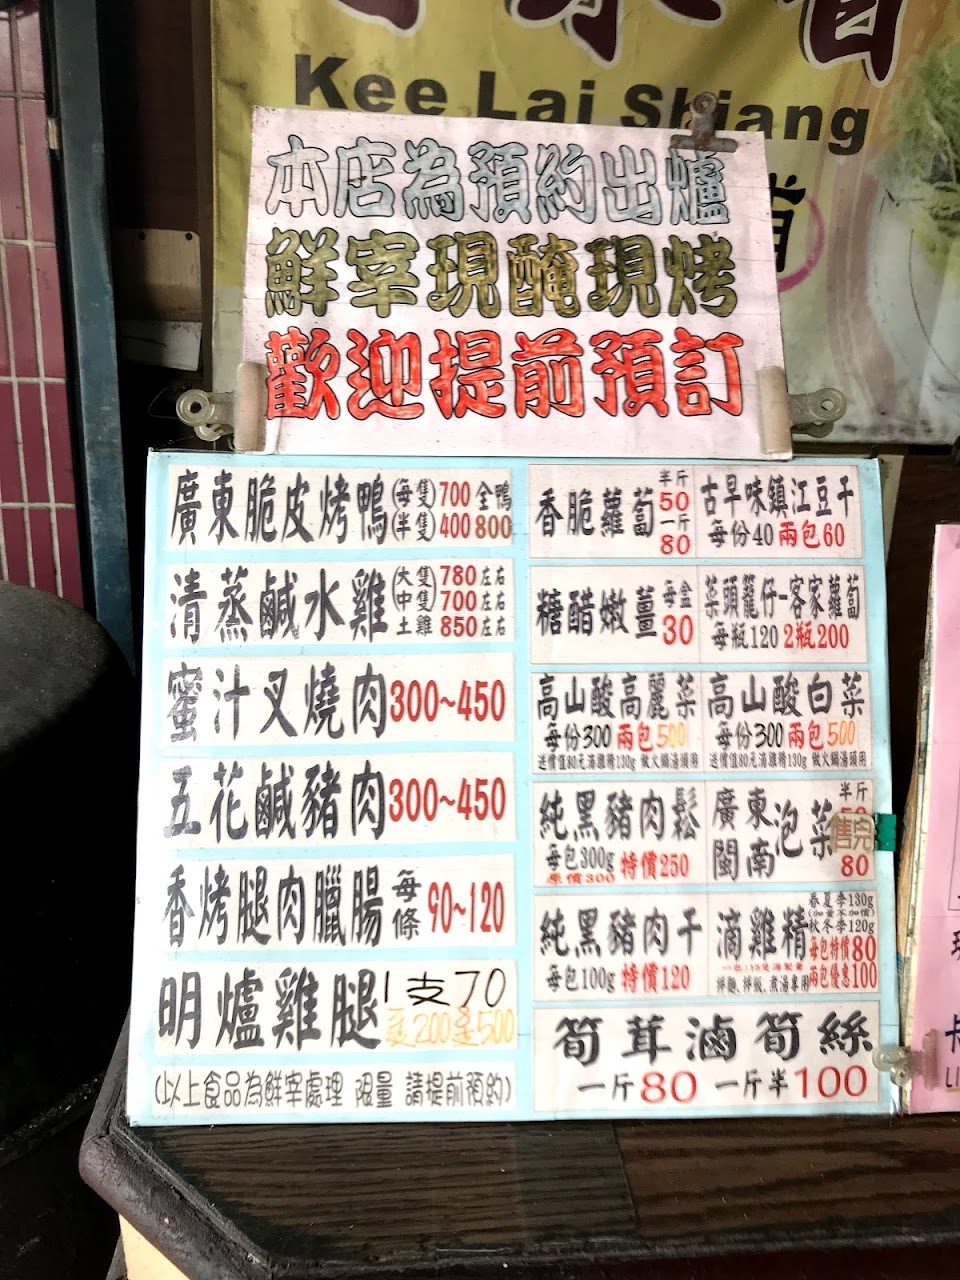 Kee Lai Shiang
本店為預約出爐
鮮宰現醃現烤
歡迎提前預訂
廣東脆皮烤鴨(每隻)700全鴨
(半隻)400 800
清蒸鹹水雞 大隻780左右
中隻700左右
土雞850左右
蜜汁叉燒肉300~450
五花鹹豬肉300~450
香烤腿肉臘腸 每條 90~120
明爐雞腿 1支70
(以上食品為鮮宰處理 限量 請提前預約)
香脆蘿蔔 半斤 50 一斤 80
古早味鎮江豆干
每份40 兩包60
糖醋嫩薑 每盒 30
菜頭籠仔-客家蘿蔔
每瓶120 2瓶200
高山酸高麗菜
每份300 兩包500
送價值80元滴雞精130g 做火鍋湯頭用
高山酸白菜
每份300 兩包500
送價值80元滴雞精130g 做火鍋湯頭用
純黑豬肉鬆
每包300g 特價250
原價300
廣東
閩南
泡菜 半斤
售完
80
純黑豬肉干
每包100g 特價120
滴雞精
春夏季130g
(加量不加價)
秋冬季120g
每包特價80
兩包優惠100
拌麵、拌飯、煮湯專用
筍茸滷筍絲
一斤80 一斤半100